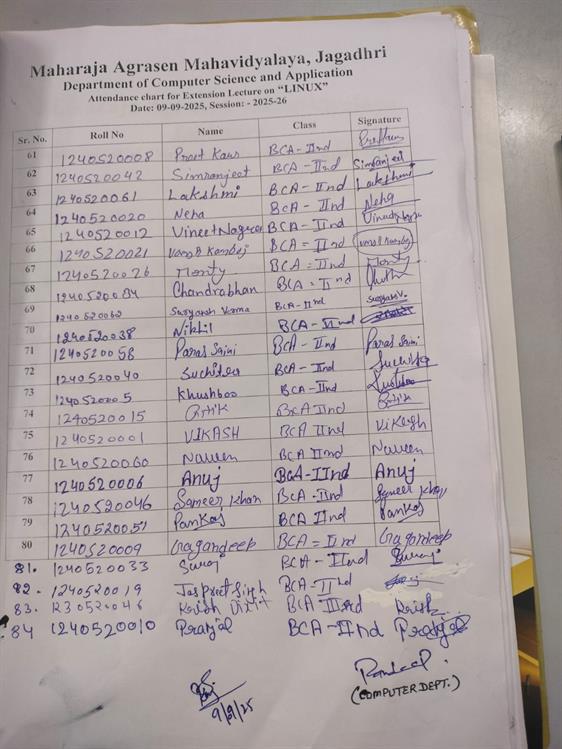 Maharaja Agrasen Mahavidyalaya, Jagadhri
Department of Computer Science and Application
Attendance chart for Extension Lecture on “LINUX”
Date: 09-09-2025, Session: - 2025-26
Sr. No. Roll No Name Class Signature
61 1240520008 Preet Kaur BCA-IInd
62 1240520042 Simranjeet BCA-IInd Simranjeet
63 1240520061 Lakshmi BCA-IInd Lakshmi
64 1240520020 Neha BCA-IInd Neha
65 1240520012 Vineet BCA-IInd
66 1240520021 Kamboj BCA=IInd Kamboj
67 1240520026 Monty BCA=IInd Monty
68 1240520034 Chandrabhan BCA=IInd
69 1240520062 Suryansh Verma BCA-IInd Suryansh V.
70 1240520038 Nikhil BCA-IInd
71 1240520058 Paras Saini BCA-IInd Paras Saini
72 1240520040 BCA-IInd
73 124052005 Khushboo BCA-IInd
74 1240520015 Ritik BCA IInd Ritik
75 1240520001 VIKASH BCA IInd Vikash
76 1240520060 Naveen BCA IInd Naveen
77 1240520006 Anuj BCA-IInd Anuj
78 1240520046 Sameer Khan BCA-IInd Sameer Khan
79 1240520051 Pankaj BCA IInd Pankaj
80 1240520009 Gagandeep BCA=IInd Gagandeep
81. 1240520033 Suraj BCA-IInd Suraj
82. 1240520019 Jaspreet Singh BCA-IInd
83. Krish BCA-IIInd Krish
84 1240520010 Pranjal BCA-IInd Pranjal
9/9/25
(COMPUTER DEPT.)